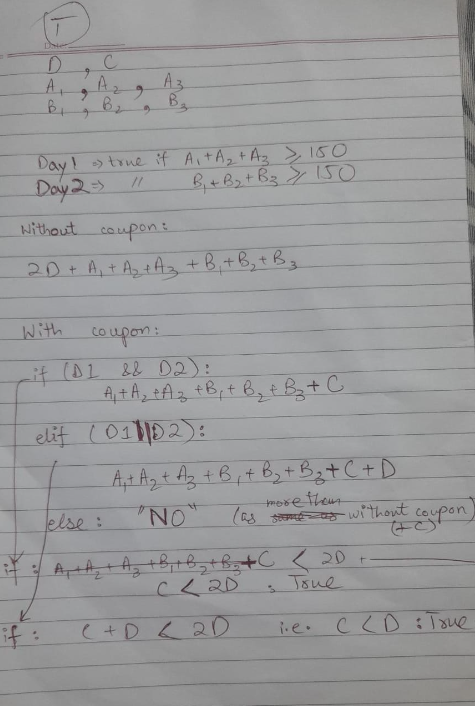 T
D , C
A₁ , A₂ , A₃
B₁ , B₂ , B₃
Day 1 ⇒ true if A₁+A₂+A₃ ≥ 150
Day 2 ⇒ " B₁+B₂+B₃ ≥ 150
Without coupon:
2D + A₁ + A₂+A₃ + B₁+B₂+B₃
With coupon:
if (D1 && D2):
A₁+A₂+A₃ +B₁+B₂+B₃+C
elif (D1||D2):
A₁+A₂+A₃+B₁+B₂+B₃+C+D
else : "NO" (as same as more than without coupon)
(+C)
if : A₁+A₂+A₃+B₁+B₂+B₃+C < 2D +
C < 2D : True
if : C+D < 2D i.e. C<D : True